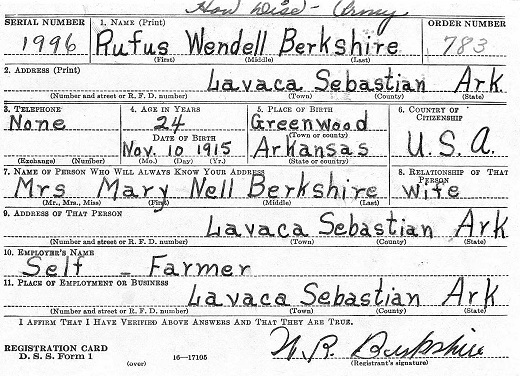 Army
SERIAL NUMBER 1. NAME (Print) ORDER NUMBER
1996 Rufus Wendell Berkshire 783
(First) (Middle) (Last)
2. ADDRESS (Print)
Lavaca Sebastian Ark
(Number and street or R. F. D. number) (Town) (County) (State)
3. TELEPHONE 4. AGE IN YEARS 5. PLACE OF BIRTH 6. COUNTRY OF CITIZENSHIP
None 24 Greenwood
(Town or county)
DATE OF BIRTH
Nov. 10 1915 Arkansas U.S.A.
(Exchange) (Number) (Mo.) (Day) (Yr.) (State or country)
7. NAME OF PERSON WHO WILL ALWAYS KNOW YOUR ADDRESS 8. RELATIONSHIP OF THAT PERSON
Mrs Mary Nell Berkshire wife
(Mr., Mrs., Miss) (First) (Middle) (Last)
9. ADDRESS OF THAT PERSON
Lavaca Sebastian Ark
(Number and street or R. F. D. number) (Town) (County) (State)
10. EMPLOYER'S NAME
Self - Farmer
11. PLACE OF EMPLOYMENT OR BUSINESS
Lavaca Sebastian Ark
(Number and street or R. F. D. number) (Town) (County) (State)
I AFFIRM THAT I HAVE VERIFIED ABOVE ANSWERS AND THAT THEY ARE TRUE.
REGISTRATION CARD
D. S. S. Form 1 (over) 16—17105
W. R. Berkshire
(Registrant's signature)